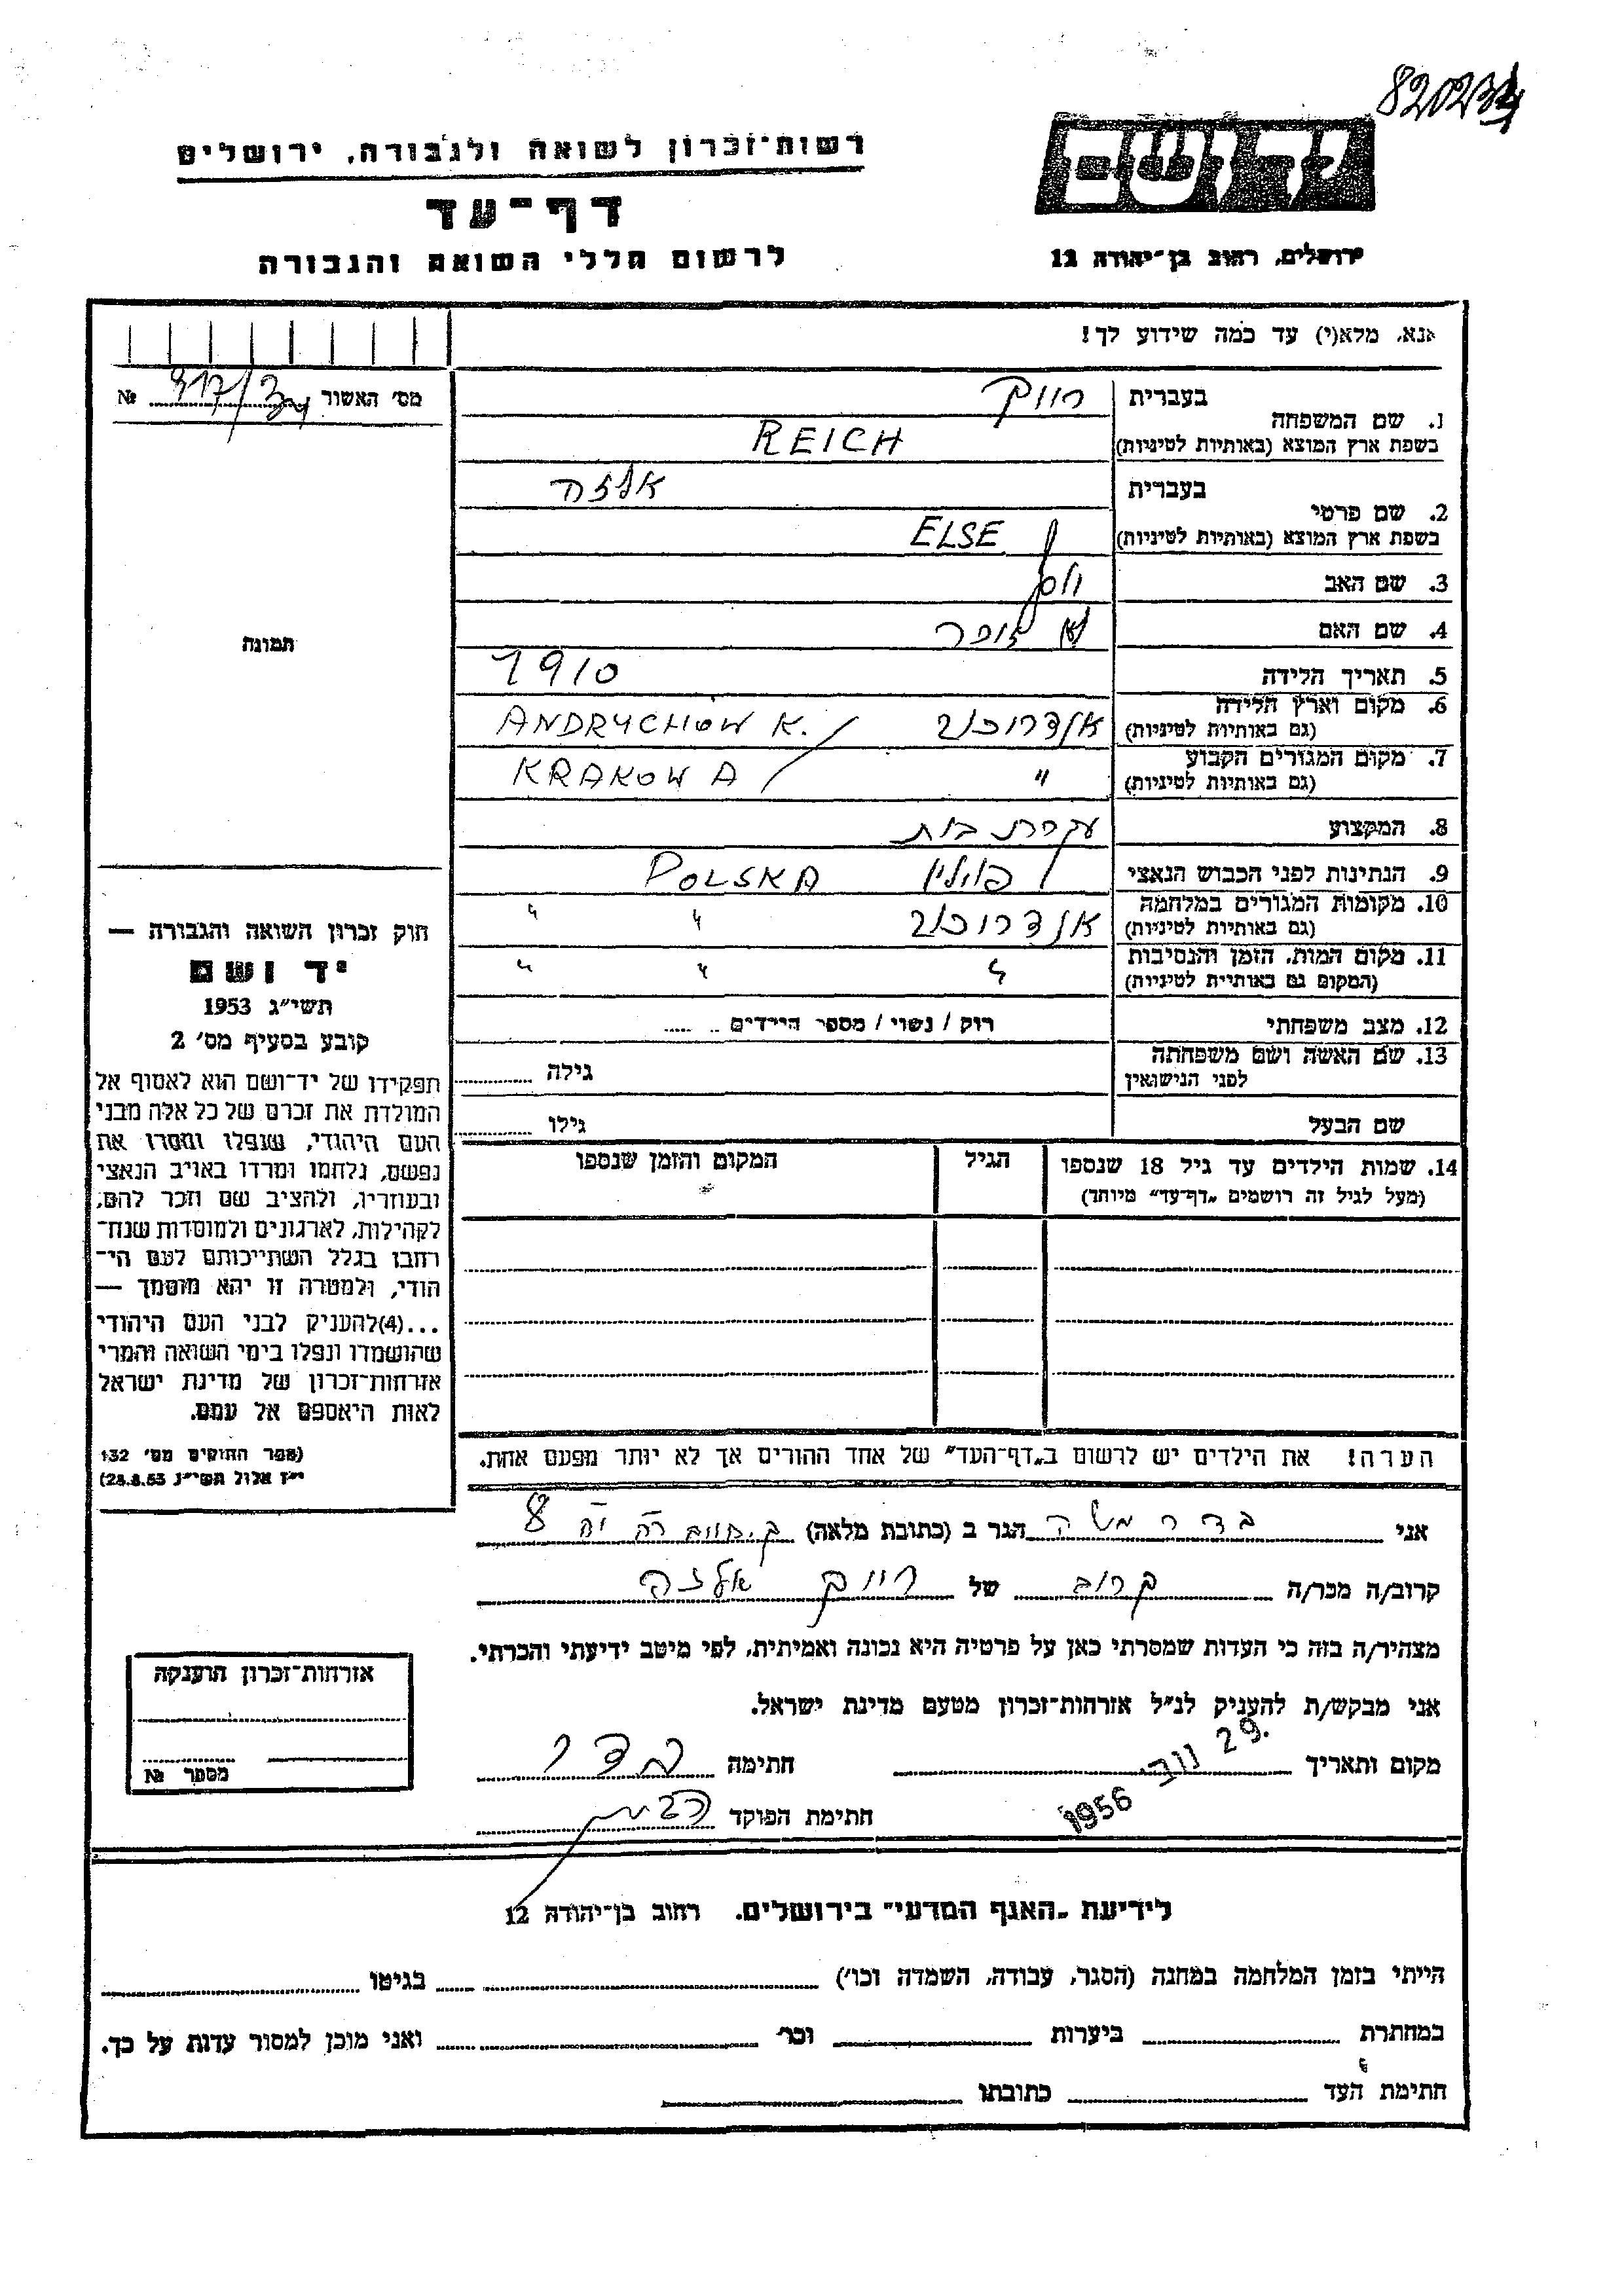 820234
רשות־זכרון לשואה ולגבורה, ירושלים
יד ושם
דף־עד
לרשום חללי השואה והגבורה
ירושלים, רחוב בן־יהודה 12
אנא, מלא(י) עד כמה שידוע לך!
מס׳ האשור № 917/
1. שם המשפחה
בעברית רייך
בשפת ארץ המוצא (באותיות לטיניות) REICH
2. שם פרטי
בעברית אלזה
בשפת ארץ המוצא (באותיות לטיניות) ELSE
3. שם האב יוסף
4. שם האם
5. תאריך הלידה 1910
6. מקום וארץ הלידה
(גם באותיות לטיניות) אנדרוכוב ANDRYCHOW K. /
7. מקום המגורים הקבוע
(גם באותיות לטיניות) " KRAKOWA
8. המקצוע עקרת בית
9. הנתינות לפני הכבוש הנאצי פולין POLSKA
10. מקומות המגורים במלחמה
(גם באותיות לטיניות) אנדרוכוב " "
11. מקום המות, הזמן והנסיבות
(המקום גם באותיית לטיניות) " " "
12. מצב משפחתי רוק / נשוי / מספר הילדים
13. שם האשה ושם משפחתה
לפני הנישואין גילה
שם הבעל גילו
14. שמות הילדים עד גיל 18 שנספו
(מעל לגיל זה רושמים „דף־עד״ מיוחד)
הגיל
המקום והזמן שנספו
הערה! את הילדים יש לרשום ב„דף־העד״ של אחד ההורים אך לא יותר מפעם אחת.
תמונה
חוק זכרון השואה והגבורה —
יד ושם
תשי״ג 1953
קובע בסעיף מס׳ 2
תפקידו של יד־ושם הוא לאסוף אל
המולדת את זכרם של כל אלה מבני
העם היהודי, שנפלו ומסרו את
נפשם, נלחמו ומרדו באויב הנאצי
ובעוזריו, ולהציב שם וזכר להם,
לקהילות, לארגונים ולמוסדות שנח־
רחבו בגלל השתייכותם לעם הי־
הודי, ולמטרה זו יהא מוסמך —
...(4)להעניק לבני העם היהודי
שהושמדו ונפלו בימי השואה והמרי
אזרחות־זכרון של מדינת ישראל
לאות היאספם אל עמם.
(ספר החוקים מס׳ 132
י״ז אלול תשי״ג 28.8.53)
אני בדר משה הגר ב (כתובת מלאה) ק. חיים רח 8
קרוב/ה מכר/ה קרוב של רייך אלזה
מצהיר/ה בזה כי העדות שמסרתי כאן על פרטיה היא נכונה ואמיתית, לפי מיטב ידיעתי והכרתי.
אני מבקש/ת להעניק לנ״ל אזרחות־זכרון מטעם מדינת ישראל.
מקום ותאריך 29. נוב׳ 1956 חתימה
חתימת הפוקד
אזרחות־זכרון הוענקה
מספר №
לידיעת „האגף המדעי״ בירושלים. רחוב בן־יהודה 12
הייתי בזמן המלחמה במחנה (הסגר, עבודה, השמדה וכו׳) בגיטו
במחתרת ביערות וכו׳ ואני מוכן למסור עדות על כך.
חתימת העד כתובתו